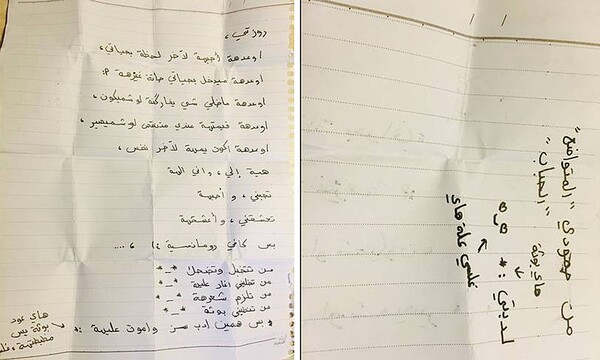 روزتي ،
اوعدهة أحبهة لآخر لحظة بحياتي ،
اوعدهة ميدخل بحياتي حياتة غيرهة
اوعدهة ماخلي شي يفاركنة لو شميكون ،
اوعدهة قيمتهة عندي متنقص لو شميصير ،
اوعدهة اكون يمهة لآخر نفس ،
هية إلي ، واني الهة
تحبني ، و أحبهة
تعشقني ، و أعشقهة
بس كافي رومانسية :( ، ....
من تتخبل وتتخبل *_*
من تخليني اغار عليهة *_*
من تلزم شعرهة *_*
من تنطيني بوثة *_*
* بس همين ادب سز واموت عليهة :*
هاي عود
بوثة بس
من مجهودي "المتواضع"
"الحباب"
هاي بوثة
لديتي :*